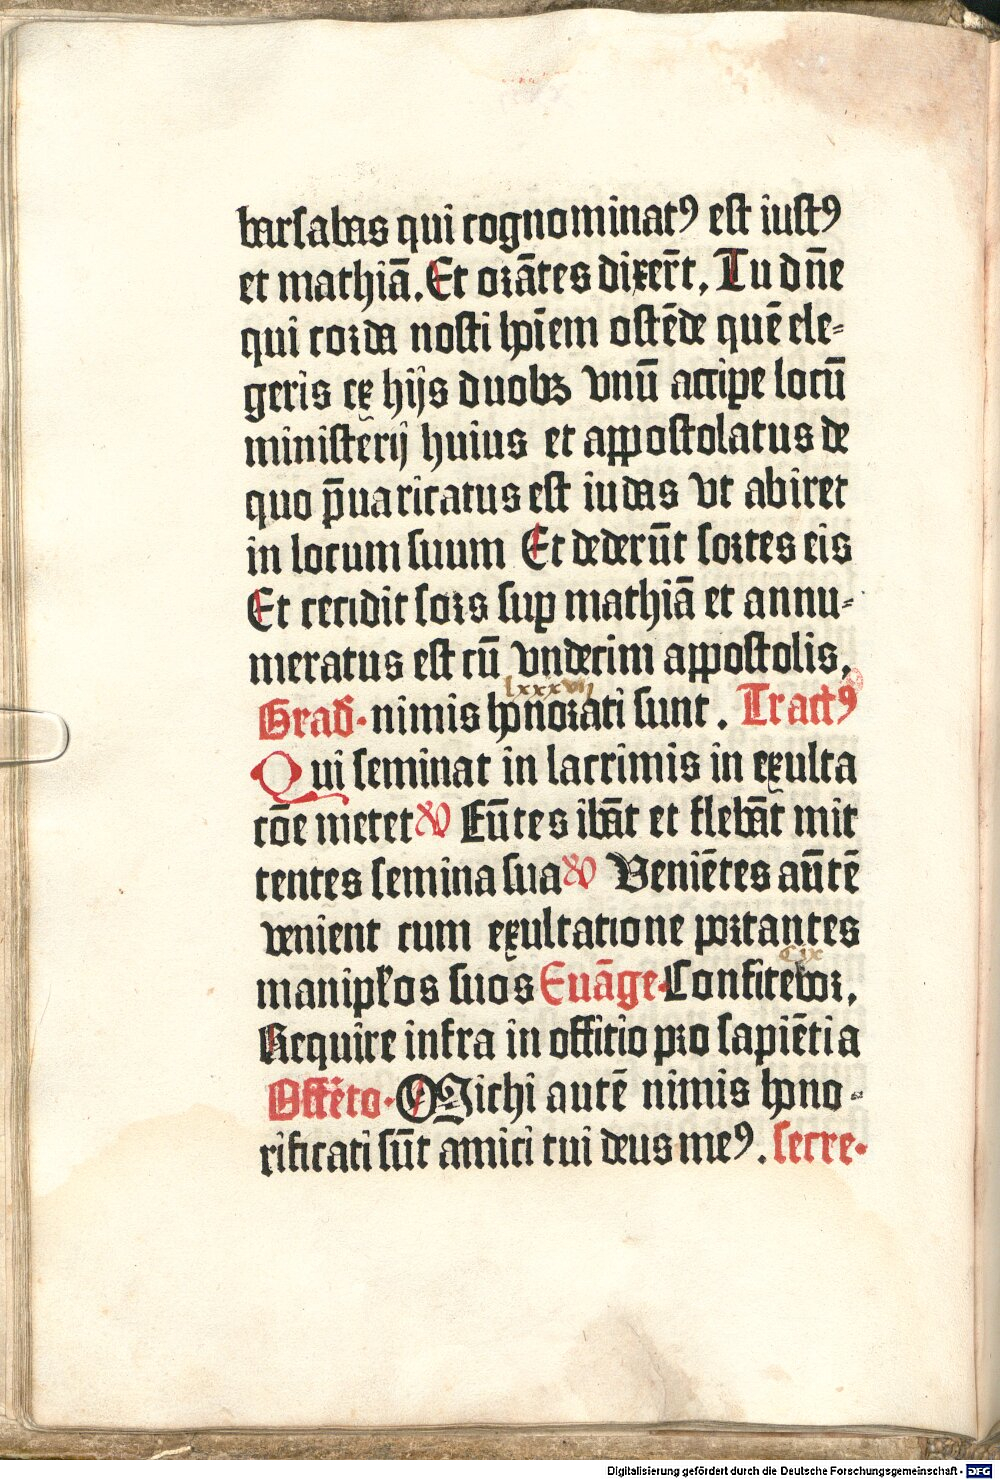 barsabas qui cognominatꝰ est iustꝰ
et mathiā. Et orātes dixer̄t. Tu dn̄e
qui corda nosti hōīem ostēde quē ele⸗
geris ex hijs duobꝫ vnū accipe locū
ministerij huius et appostolatus de
quo p̄uaricatus est iudas vt abiret
in locum suum Et dederūt sortes eis
Et cecidit sors suꝑ mathiā et annu⸗
meratus est cū vndecim appostolis.
lxxxvij
Grad. nimis honorati sunt. Tractꝰ
Qui seminat in lacrimis in exulta
cōe metet ꝟ Eūtes ibāt et flebāt mit
tentes semina sua ꝟ Veniētes aūtē
venient cum exultatione portantes
cix
manipłos suos Euāge. Confitebor.
Require infra in offitio pro sapiētia
Offēto. Michi autē nimis hono⸗
rificati sūt amici tui deus meꝰ. secre.
Digitalisierung gefördert durch die Deutsche Forschungsgemeinschaft - DFG